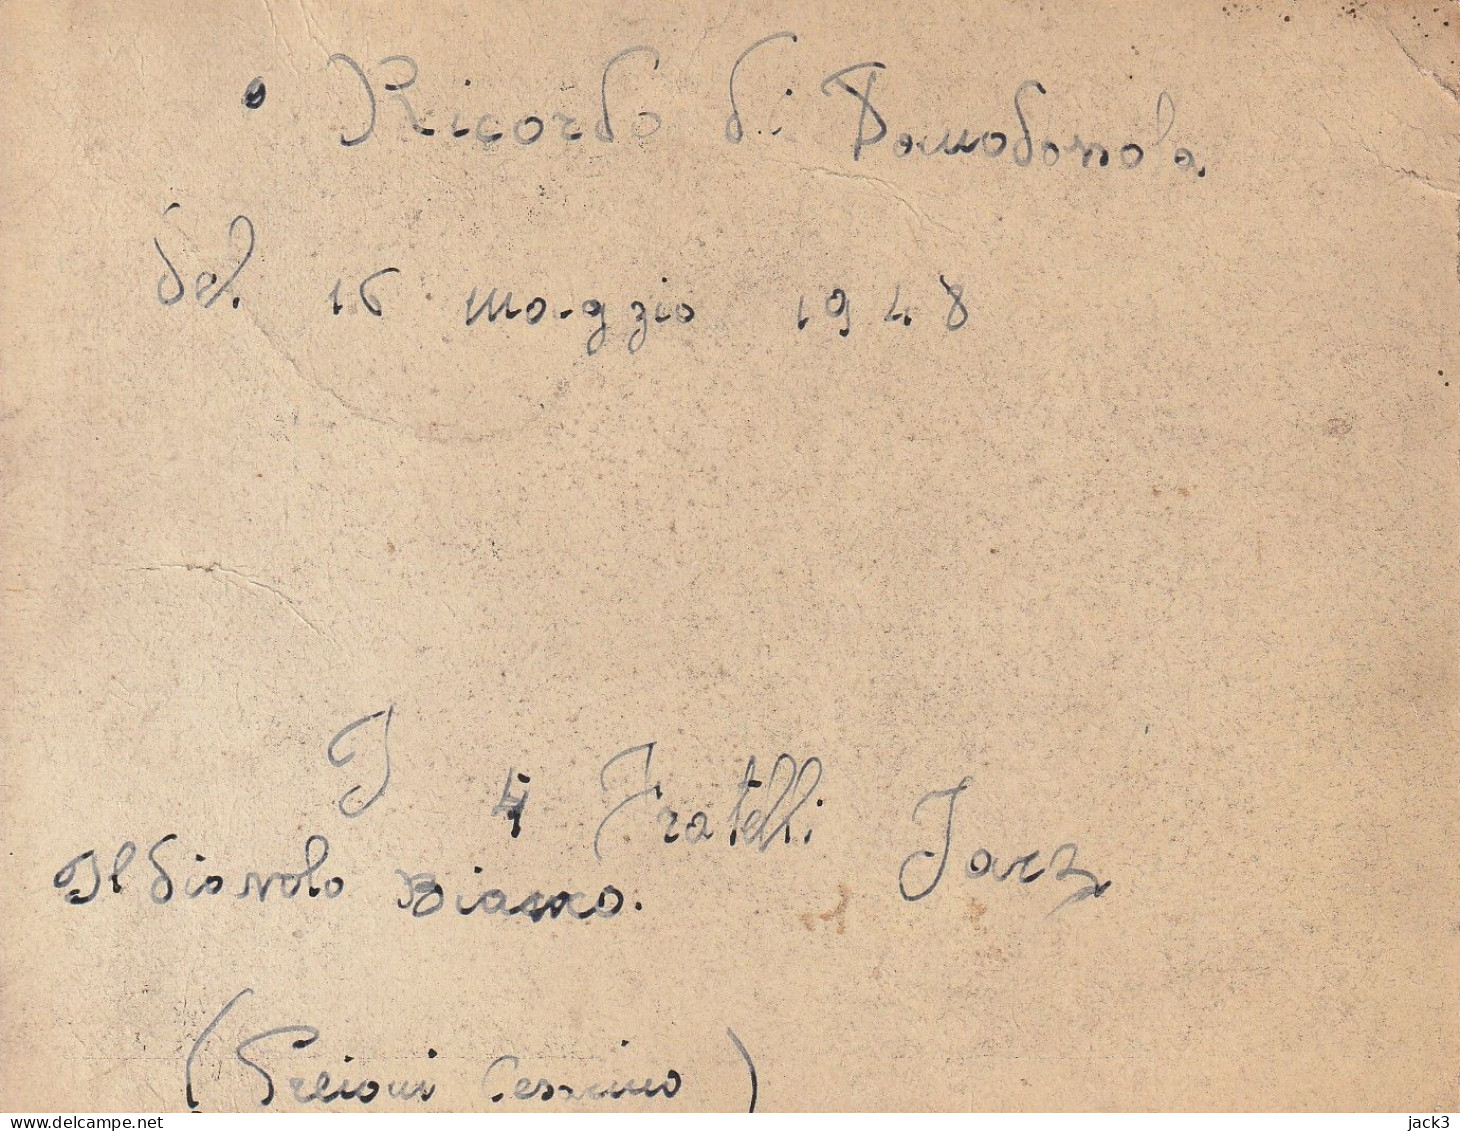 Ricordo di Domodossola.
del. 16 maggio 1948
I 4 Fratelli Jarz
Il Diavolo Bianco.
(Preioni
delcampe.net
jack3